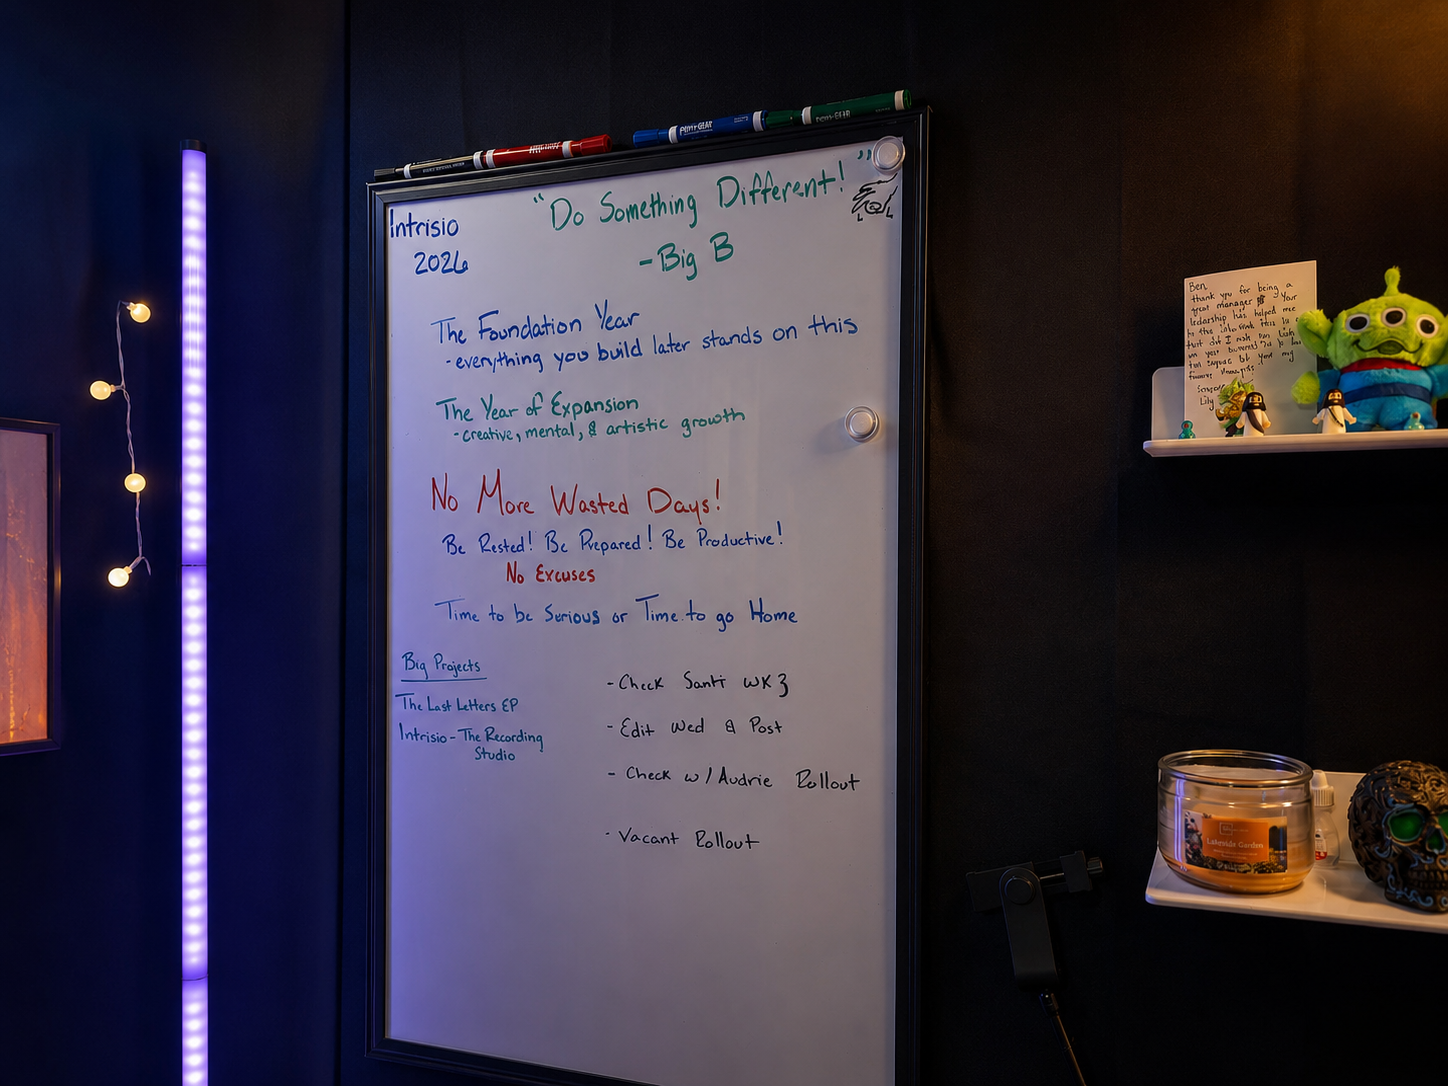 Intrisio
2026
"Do Something Different!"
- Big B
The Foundation Year
- everything you build later stands on this
The Year of Expansion
- creative, mental, & artistic growth
No More Wasted Days!
Be Rested! Be Prepared! Be Productive!
No Excuses
Time to be Serious or Time to go Home
Big Projects
The Last Letters EP
Intrisio - The Recording
Studio
- Check Santi WK 3
- Edit Wed & Post
- Check w/ Audrie Rollout
- Vacant Rollout
Ben,
thank you for being a
great manager Your
has helped me
Lily
Lakeside Garden